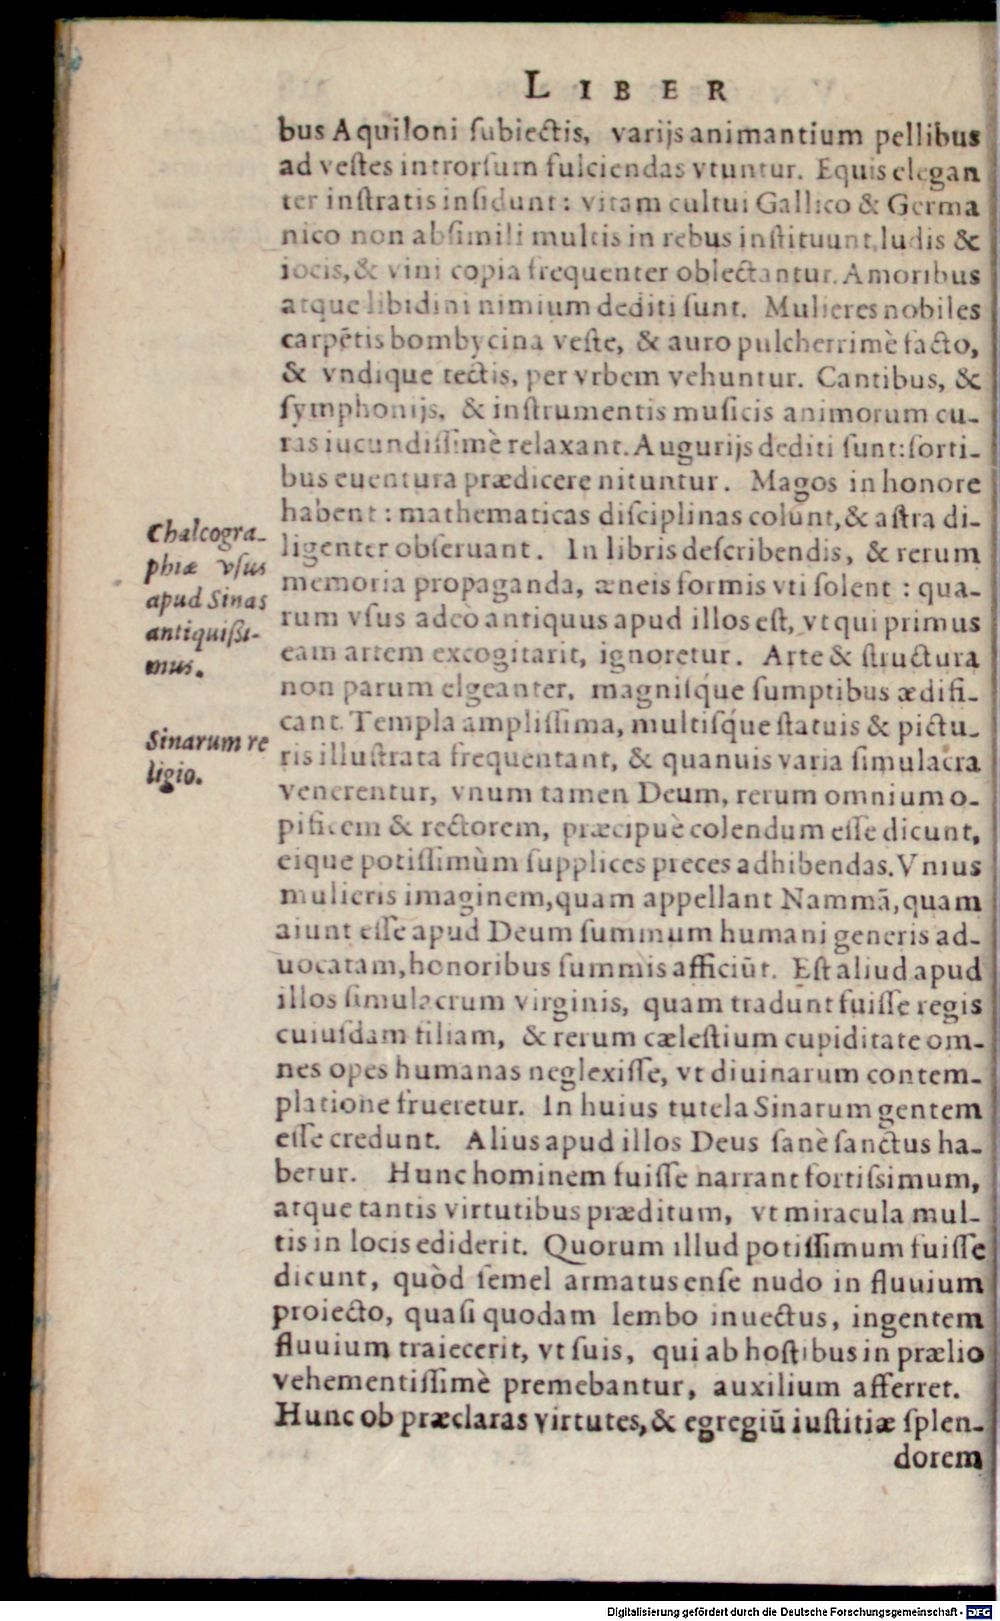 LIBER
bus Aquiloni subiectis, varijs animantium pellibus
ad vestes introrsum fulciendas vtuntur. Equis elegan
ter instratis insidunt: vitam cultui Gallico & Germa
nico non absimili multis in rebus instituunt, ludis &
iocis, & vini copia frequenter oblectantur. Amoribus
atque libidini nimium dediti sunt. Mulieres nobiles
carpētis bombycina veste, & auro pulcherrimè facto,
& vndique tectis, per vrbem vehuntur. Cantibus, &
symphonijs, & instrumentis musicis animorum cu-
ras iucundissimè relaxant. Augurijs dediti sunt: sorti-
bus euentura prædicere nituntur. Magos in honore
habent: mathematicas disciplinas colunt, & astra di-
ligenter obseruant. In libris describendis, & rerum
memoria propaganda, æneis formis vti solent: qua-
rum vsus adeò antiquus apud illos est, vt qui primus
eam artem excogitarit, ignoretur. Arte & structura
non parum elgeanter, magnisq́ue sumptibus ædifi-
cant. Templa amplissima, multisq́ue statuis & pictu-
ris illustrata frequentant, & quanuis varia simulacra
venerentur, vnum tamen Deum, rerum omnium o-
pificem & rectorem, præcipuè colendum esse dicunt,
eique potissimùm supplices preces adhibendas. Vnius
mulieris imaginem, quam appellant Nammā, quam
aiunt esse apud Deum summum humani generis ad-
uocatam, honoribus summis afficiūt. Est aliud apud
illos simulacrum virginis, quam tradunt fuisse regis
cuiusdam filiam, & rerum cælestium cupiditate om-
nes opes humanas neglexisse, vt diuinarum contem-
platione frueretur. In huius tutela Sinarum gentem
esse credunt. Alius apud illos Deus sanè sanctus ha-
betur. Hunc hominem fuisse narrant fortissimum,
atque tantis virtutibus præditum, vt miracula mul-
tis in locis ediderit. Quorum illud potissimum fuisse
dicunt, quòd semel armatus ense nudo in fluuium
proiecto, quasi quodam lembo inuectus, ingentem
fluuium traiecerit, vt suis, qui ab hostibus in prælio
vehementissimè premebantur, auxilium afferret.
Hunc ob præclaras virtutes, & egregiū iustitiæ splen-
dorem
Chalcogra-
phiæ vsus
apud Sinas
antiquissi-
mus.
Sinarum re
ligio.
Digitalisierung gefördert durch die Deutsche Forschungsgemeinschaft - DFG